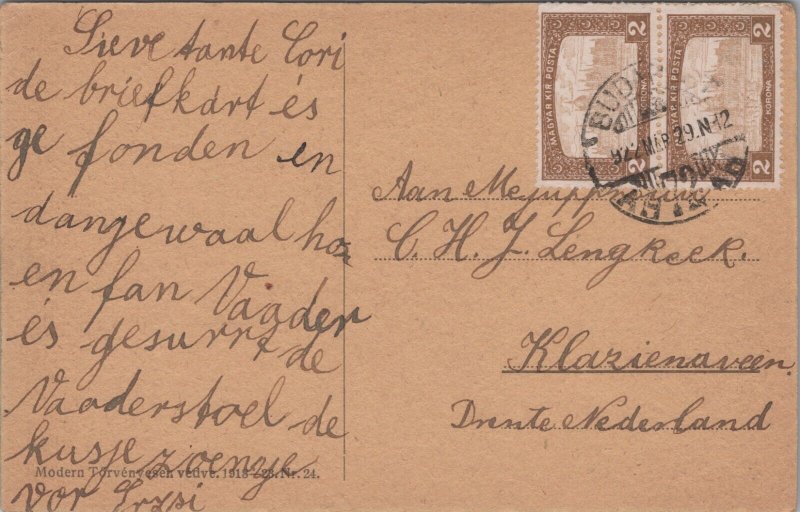 Lieve tante Cori
de briefkart és
ge fonden en
dangewaal hoz
en fan Vaader
és gesurrt de
Vaaderstoel de
kusje zoenge
vor Erzsi
Modern Törvényesen védve. 1918-23. Nr. 24.
MAGYAR KIR. POSTA
2 KORONA 2
MAGYAR KIR. POSTA
2 KORONA 2
BUDA
922 MAR 29. N 12
Aan Mejuppvrouw
C. H. J. Lengkeek.
Klazienaveen.
Drente Nederland